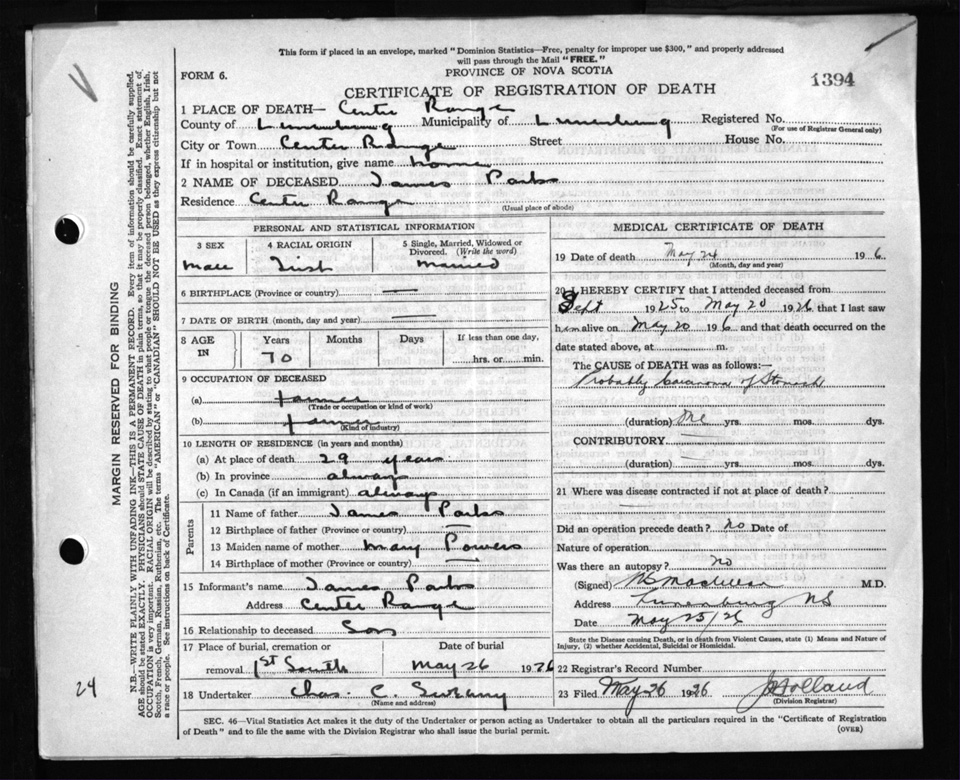 This form if placed in an envelope, marked "Dominion Statistics—Free, penalty for improper use $300," and properly addressed
will pass through the Mail "FREE."
FORM 6.
PROVINCE OF NOVA SCOTIA
1394
CERTIFICATE OF REGISTRATION OF DEATH
1 PLACE OF DEATH— Center Range
County of Lunenburg Municipality of Lunenburg Registered No.
(For use of Registrar General only)
City or Town Center Range Street House No.
If in hospital or institution, give name home
2 NAME OF DECEASED James Parks
Residence Center Range
(Usual place of abode)
PERSONAL AND STATISTICAL INFORMATION
3 SEX 4 RACIAL ORIGIN 5 Single, Married, Widowed or Divorced. (Write the word)
Male Irish Married
6 BIRTHPLACE (Province or country) —
7 DATE OF BIRTH (month, day and year) —
8 AGE IN Years Months Days If less than one day,
70 hrs. or min.
9 OCCUPATION OF DECEASED
(a) farmer
(Trade or occupation or kind of work)
(b) farmer
(Kind of industry)
10 LENGTH OF RESIDENCE (in years and months)
(a) At place of death 29 years
(b) In province always
(c) In Canada (if an immigrant) always
Parents
11 Name of father James Parks
12 Birthplace of father (Province or country) —
13 Maiden name of mother Mary Powers
14 Birthplace of mother (Province or country) —
15 Informant's name James Parks
Address Center Range
16 Relationship to deceased Son
17 Place of burial, cremation or removal 1st South Date of burial May 26 1926
18 Undertaker Chas. C.
(Name and address)
MEDICAL CERTIFICATE OF DEATH
19 Date of death May 24 19 6
(Month, day and year)
20 I HEREBY CERTIFY that I attended deceased from
Sept 1925 to May 20 1926 that I last saw
him alive on May 20 19 6 and that death occurred on the
date stated above, at m.
The CAUSE OF DEATH was as follows:—
Probably Carcinoma of Stomach
(duration) One yrs. mos. dys.
CONTRIBUTORY
(duration) yrs. mos. dys.
21 Where was disease contracted if not at place of death?
Did an operation precede death? no Date of
Nature of operation
Was there an autopsy? no
(Signed) M.D.
Address Lunenburg NS
Date May 25/26
State the Disease causing Death, or in death from Violent Causes, state (1) Means and Nature of Injury, (2) whether Accidental, Suicidal or Homicidal.
22 Registrar's Record Number
23 Filed May 26 1926 Holland
(Division Registrar)
SEC. 46—Vital Statistics Act makes it the duty of the Undertaker or person acting as Undertaker to obtain all the particulars required in the "Certificate of Registration
of Death" and to file the same with the Division Registrar who shall issue the burial permit.
(OVER)
MARGIN RESERVED FOR BINDING
N.B.—WRITE PLAINLY WITH UNFADING INK—THIS IS A PERMANENT RECORD. Every item of information should be carefully supplied.
AGE should be stated EXACTLY. PHYSICIANS should STATE CAUSE OF DEATH in plain terms, so that it may be properly classified. Exact statement of
OCCUPATION is very important. RACIAL ORIGIN will be described by stating to what people or tongue the deceased person belonged, whether English, Irish,
Scotch, French, German, Russian, Ruthenian, etc. The terms "AMERICAN" or "CANADIAN" SHOULD NOT BE USED as they express citizenship but not
a race or people. See instructions on back of Certificate.
24